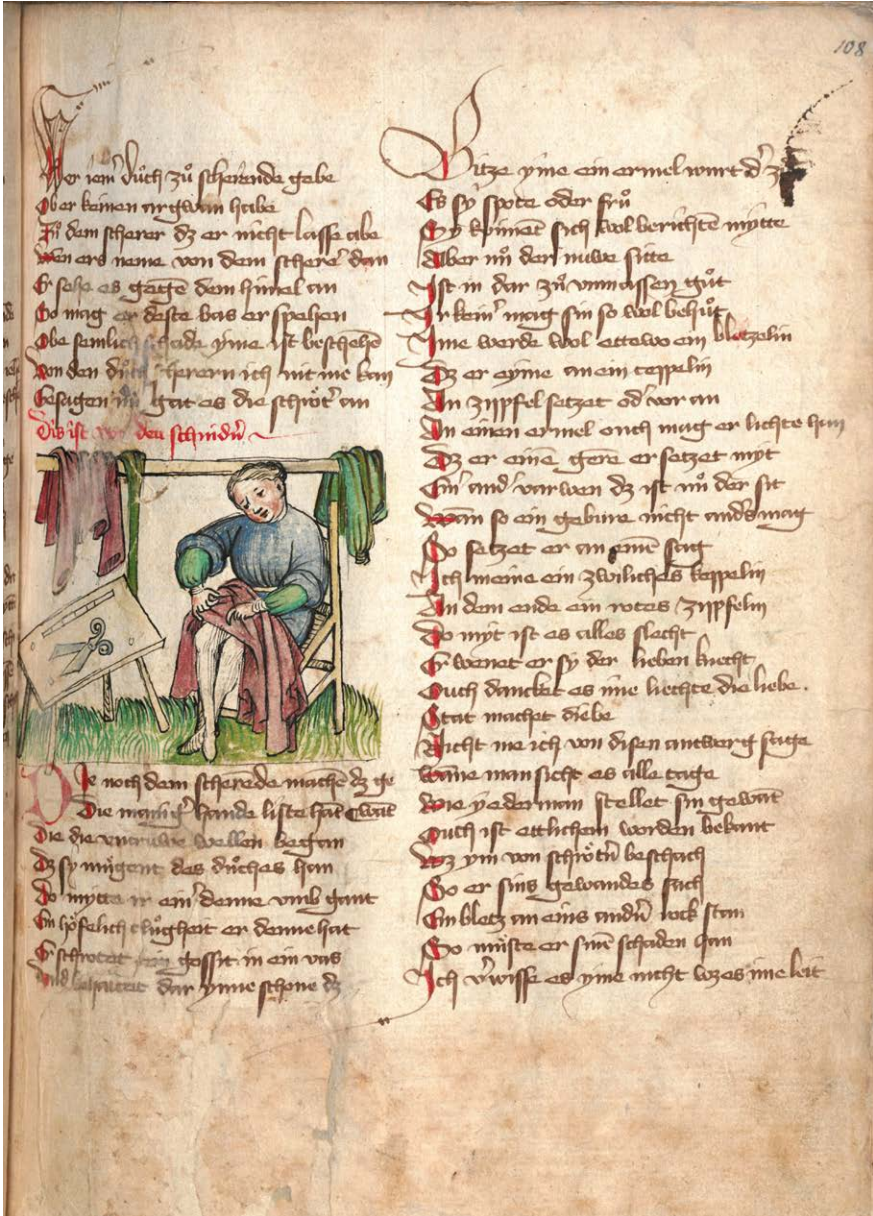 108
Wer iem̄ důch zů scherende gebe
Ober keinen argwan habe
Zů dem scherer dz er nicht lasse abe
Wen ers neme von dem scherer̄ dan
Er sehe es gegē dem himel an
So mag er deste bas er spehen
Obe semlich schade yme ist beschehē
Von den důch scherern ich nit me kan
Gesagen nů gat es die schrōt̄ an
Dis ist von den schindn̄
Die noch dem scherēde machē dz ge
Die maniḡ hande liste hāt wāt
Die die vntruwe wellen began
Dz sy mügent des důches han
Do mytte ir ein̄ denne vmb gant
Ein höfelich clůgheit er denne hat
Er schrotet gossit in ein vas
Vnd behaltet dar ynne schone dz
Bitze yme ein ermel wurt d̄ zů
Es sy spote oder frů
Sy kōnnēt sich wol berichtē mytte
Aber nů der nuwe sitte
Ist in dar zů vnmassen gůt
Ir kein̄ mag sin so wol behůt
Ime werde wol ettewo ein bletzelin
Dz er eyme an ein coppelin
An zippfel setzet od̄ vor an
An einen ermel ouch mag er lichte han
Dz er einē gere er setzet myt
Ein̄ and̄ varwen dz ist nů der sit
Wan so ein gebure nicht and̄s mag
So setzet er an sinē sag
Ich meine ein zwiliches keppelin
An dem ende ein rotes zippfelin
Do myt ist es alles slecht
Er wenet er sy der lieben knecht
Ouch dancket es ime liechte die liebe.
Stat machet diebe
Nicht me ich von disen antwerg sage
Wāne man sicht es alle tage
Wie yederman stellet sin gewāt
Ouch ist ettlichem worden bekant
Wz ym von schrōtn̄ beschach
So er sins gewandes sach
Ein bletz an eins andn̄ rock stan
So müste er sinē schaden han
Ich v̄wisse es yme nicht wz es ime leit